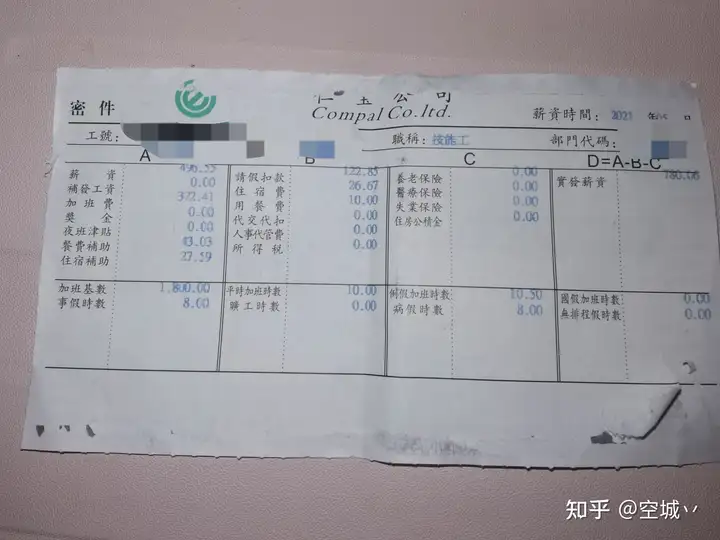 密件
仁宝公司
Compal Co.ltd.
薪資時間: 2021 年
工號:
職稱: 技能工
部門代碼:
A B C D=A-B-C
薪資 496.55 請假扣款 122.85 養老保險 0.00 實發薪資 780.06
補發工資 0.00 住宿費 26.67 醫療保險 0.00
加班費 372.41 用餐費 10.00 失業保險 0.00
獎金 0.00 代交代扣 0.00 住房公積金 0.00
夜班津貼 0.00 人事代管費 0.00
餐費補助 43.03 所得稅 0.00
住宿補助 27.59
加班基數 1,800.00 平時加班時數 10.00 例假加班時數 10.50 國假加班時數 0.00
事假時數 8.00 曠工時數 0.00 病假時數 8.00 無排程假時數 0.00
知乎 @空城丷